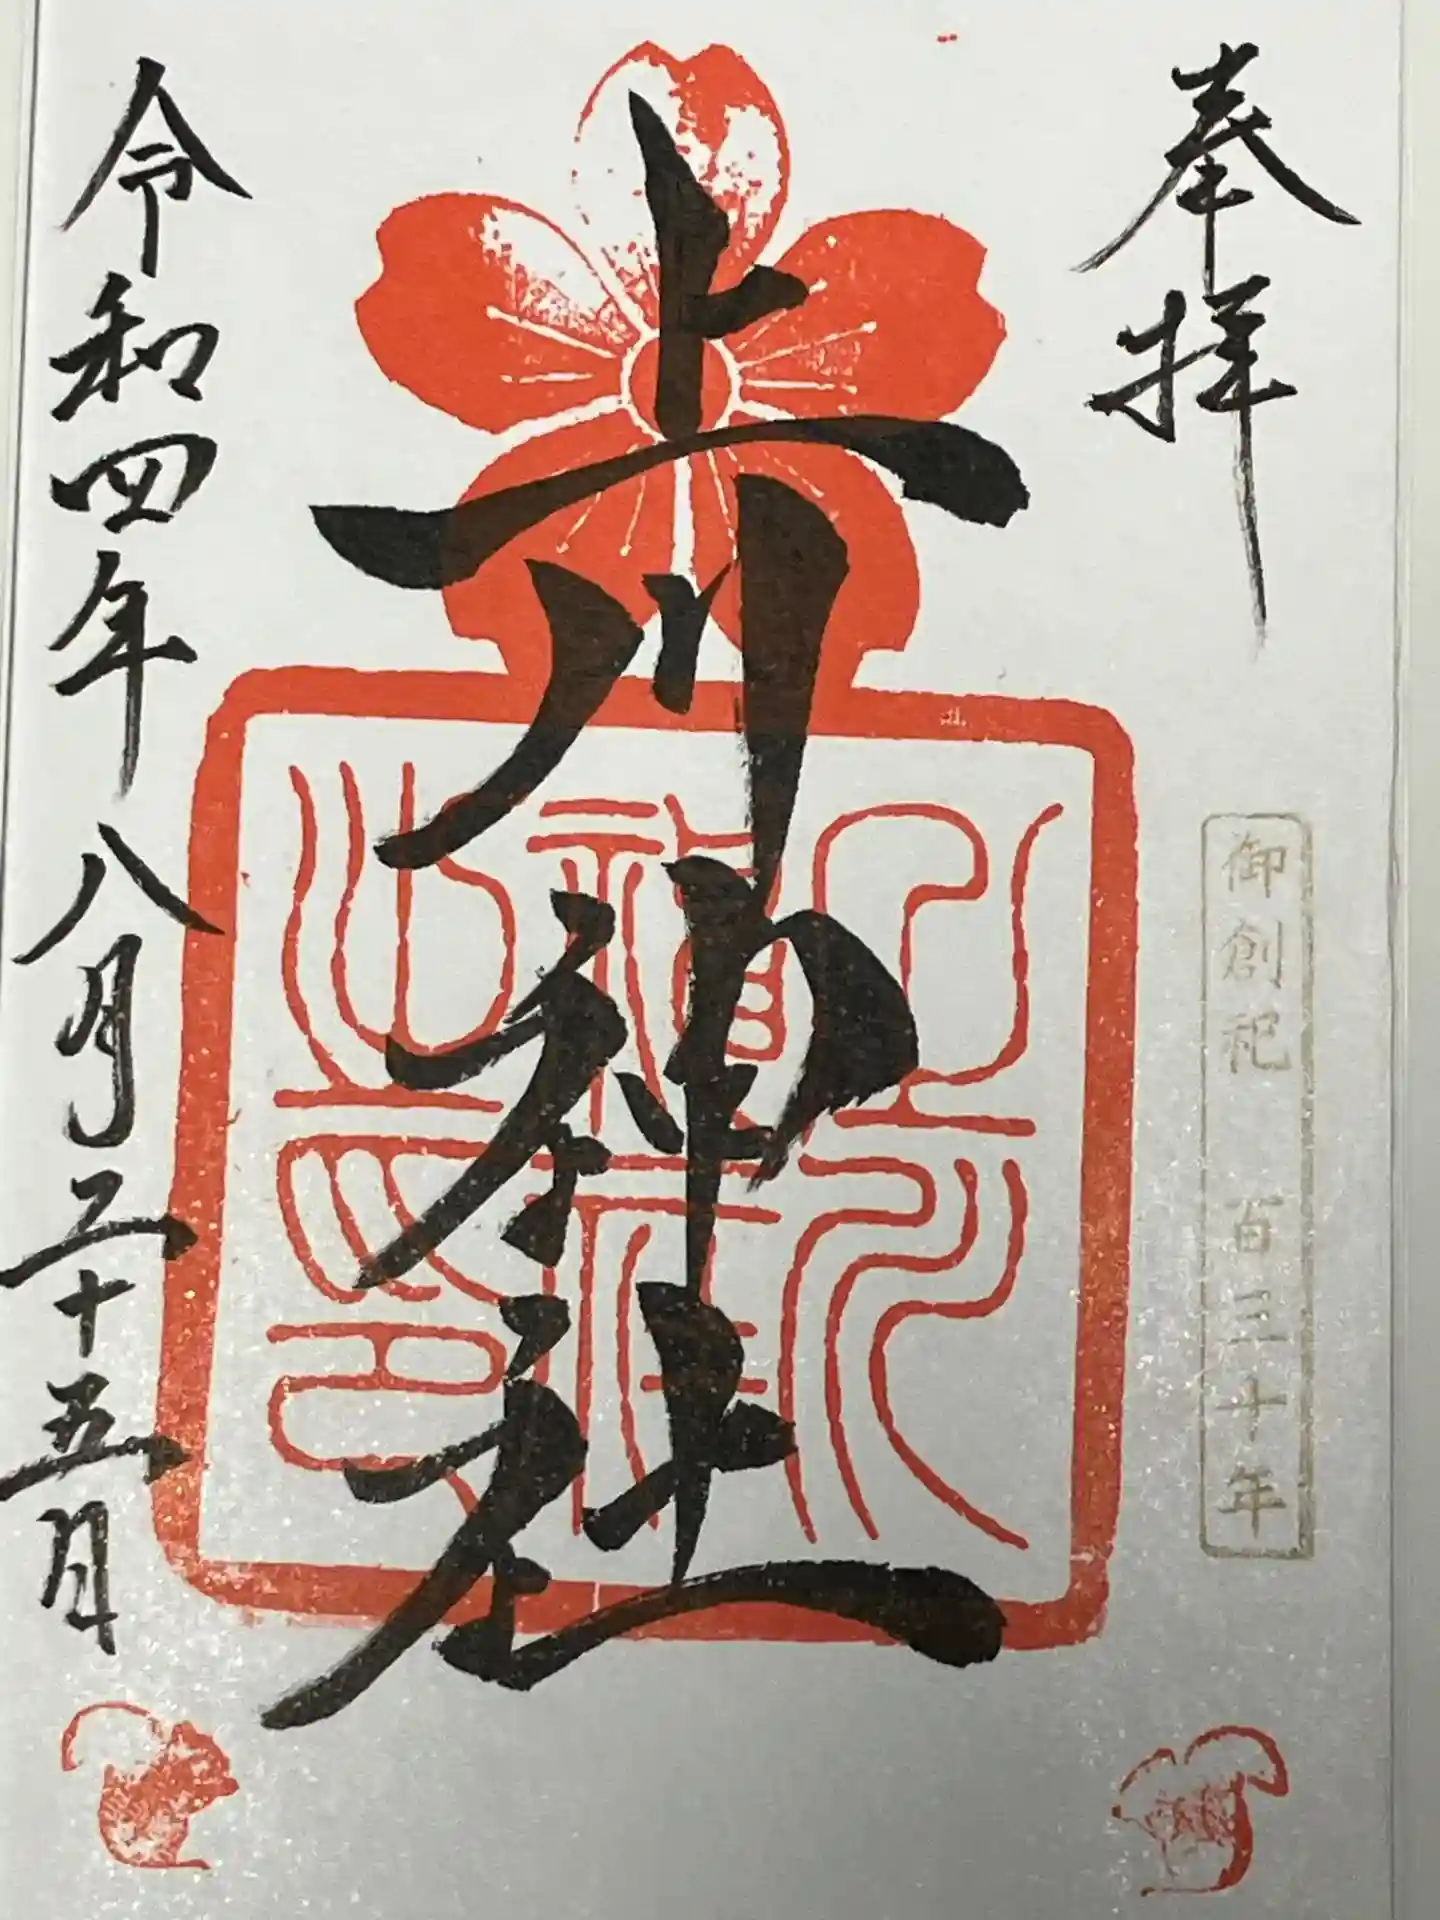 奉拝
御創祀　百三十年
上川神社
上川
神社
之印
令和四年八月二十五日